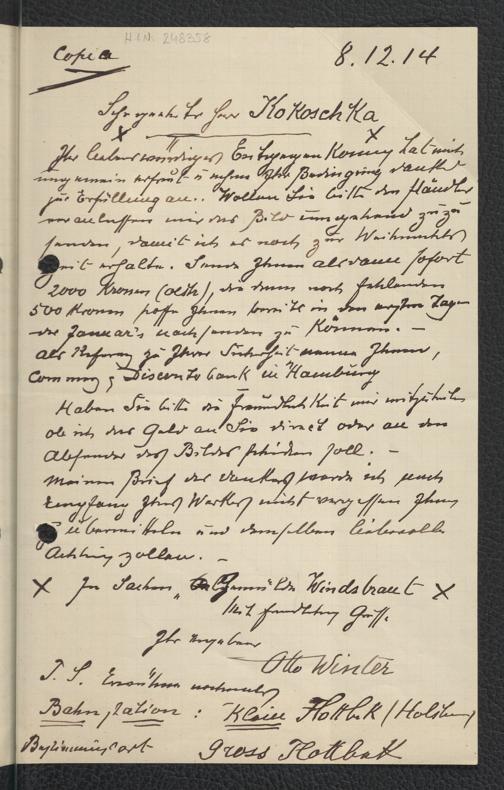 H.I.N. 248358
Copia
8.12.14
Sehr geehrter Herr Kokoschka
Ihr liebenswürdiges Entgegenkommen hat mich
ungemein erfreut u nehme Ihre Bedingung dankend
zur Erfüllung an.. Wollen Sie bitte den Händler
veranlassen mir das Bild umgehend zuzu
senden, damit ich es noch zur Weihnachts
zeit erhalte. Sende Ihnen alsdann sofort
2000 Kronen (östr), die dann noch fehlenden
500 Kronen hoffe Ihnen bereits in den ersten Tagen
des Januar's nachsenden zu Können. –
als Referenz zu Ihrer Sicherheit nenne Ihnen,
Commerz & Disconto bank in Hamburg
Haben Sie bitte die Freundlichkeit mir mitzuteilen
ob ich das Geld an Sie direct oder an den
Absender des Bildes schicken soll. –
Meinen Brief des Dankes werde ich nach
Empfang Ihres Werkes nicht vergessen Ihnen
zu übermitteln und demselben liebevolle
Achtung zollen. –
X In Sachen „ Gemälde Windsbraut X
Mit freundlichem Gruss.
Ihr ergebener
Otto Winter
P. S. Erwähne nochmals
Bahnstation : Klein Flottbek / Holstein
Bestimmungsort Gross Flottbek